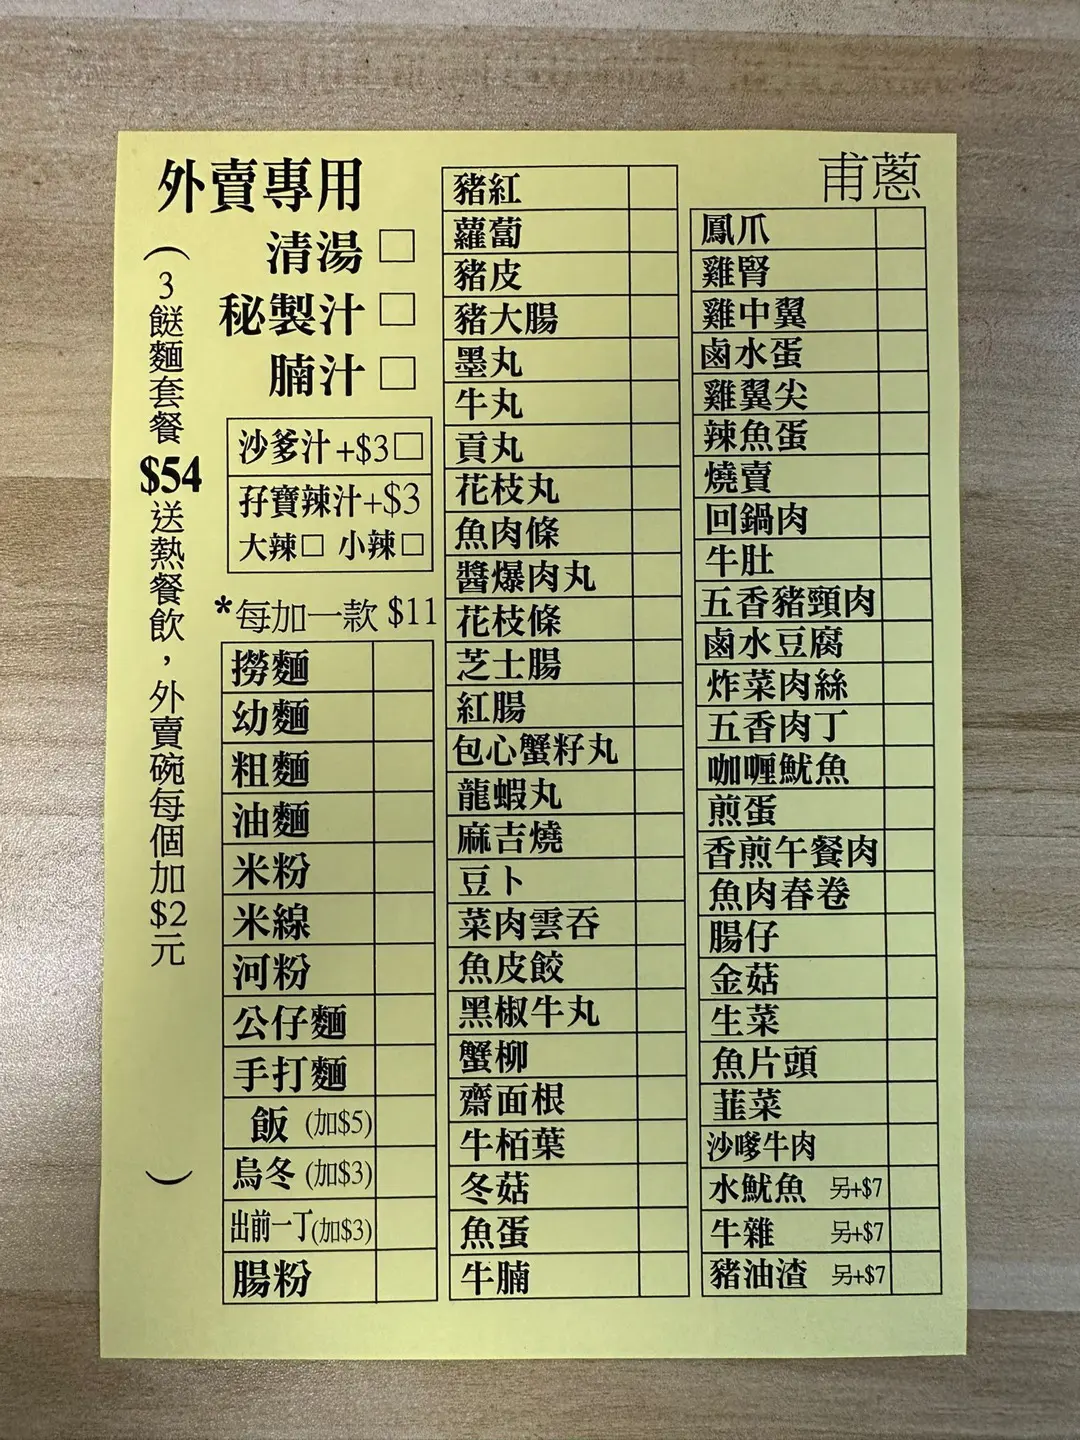 外賣專用
（3餸麵套餐$54送熱餐飲，外賣碗每個加$2元）
清湯 □
秘製汁 □
腩汁 □
沙爹汁+$3□
孖寶辣汁+$3
大辣□ 小辣□
*每加一款 $11
撈麵
幼麵
粗麵
油麵
米粉
米線
河粉
公仔麵
手打麵
飯 (加$5)
烏冬 (加$3)
出前一丁(加$3)
腸粉
豬紅
蘿蔔
豬皮
豬大腸
墨丸
牛丸
貢丸
花枝丸
魚肉條
醬爆肉丸
花枝條
芝士腸
紅腸
包心蟹籽丸
龍蝦丸
麻吉燒
豆卜
菜肉雲吞
魚皮餃
黑椒牛丸
蟹柳
齋面根
牛栢葉
冬菇
魚蛋
牛腩
甫蔥
鳳爪
雞腎
雞中翼
鹵水蛋
雞翼尖
辣魚蛋
燒賣
回鍋肉
牛肚
五香豬頸肉
鹵水豆腐
炸菜肉絲
五香肉丁
咖喱魷魚
煎蛋
香煎午餐肉
魚肉春卷
腸仔
金菇
生菜
魚片頭
韮菜
沙嗲牛肉
水魷魚 另+$7
牛雜 另+$7
豬油渣 另+$7